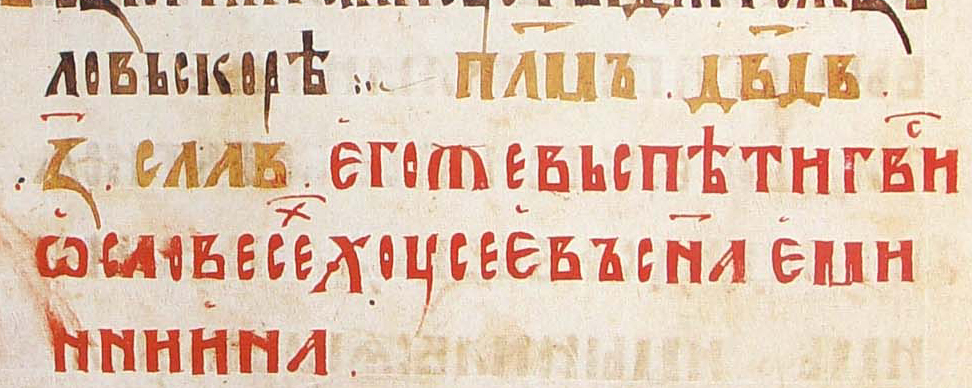 ловьскорѣ ⁘ пл҃мъ . дв҃дв .
. з҃ . слав . егожевьспѣтигв҃ⷭ҇и
ѡсловесехⷯ҇оусеевъсн҃а еми
нниина .